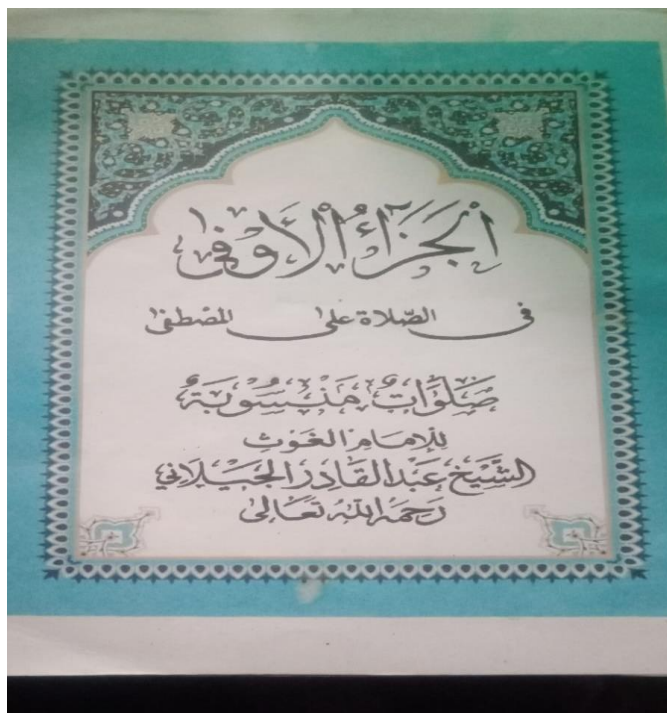 الجَزَاءُ الأَوْفى
فى الصّلاة على المصْطفى
صَلَوَاتٌ مَنْسُوبَةٌ
لِلإِمَامِ الغَوْثِ
الشَّيْخ عَبْدالقَادِر الجَيْلَانِي
رَحِمَهُ اللهُ تَعَالى